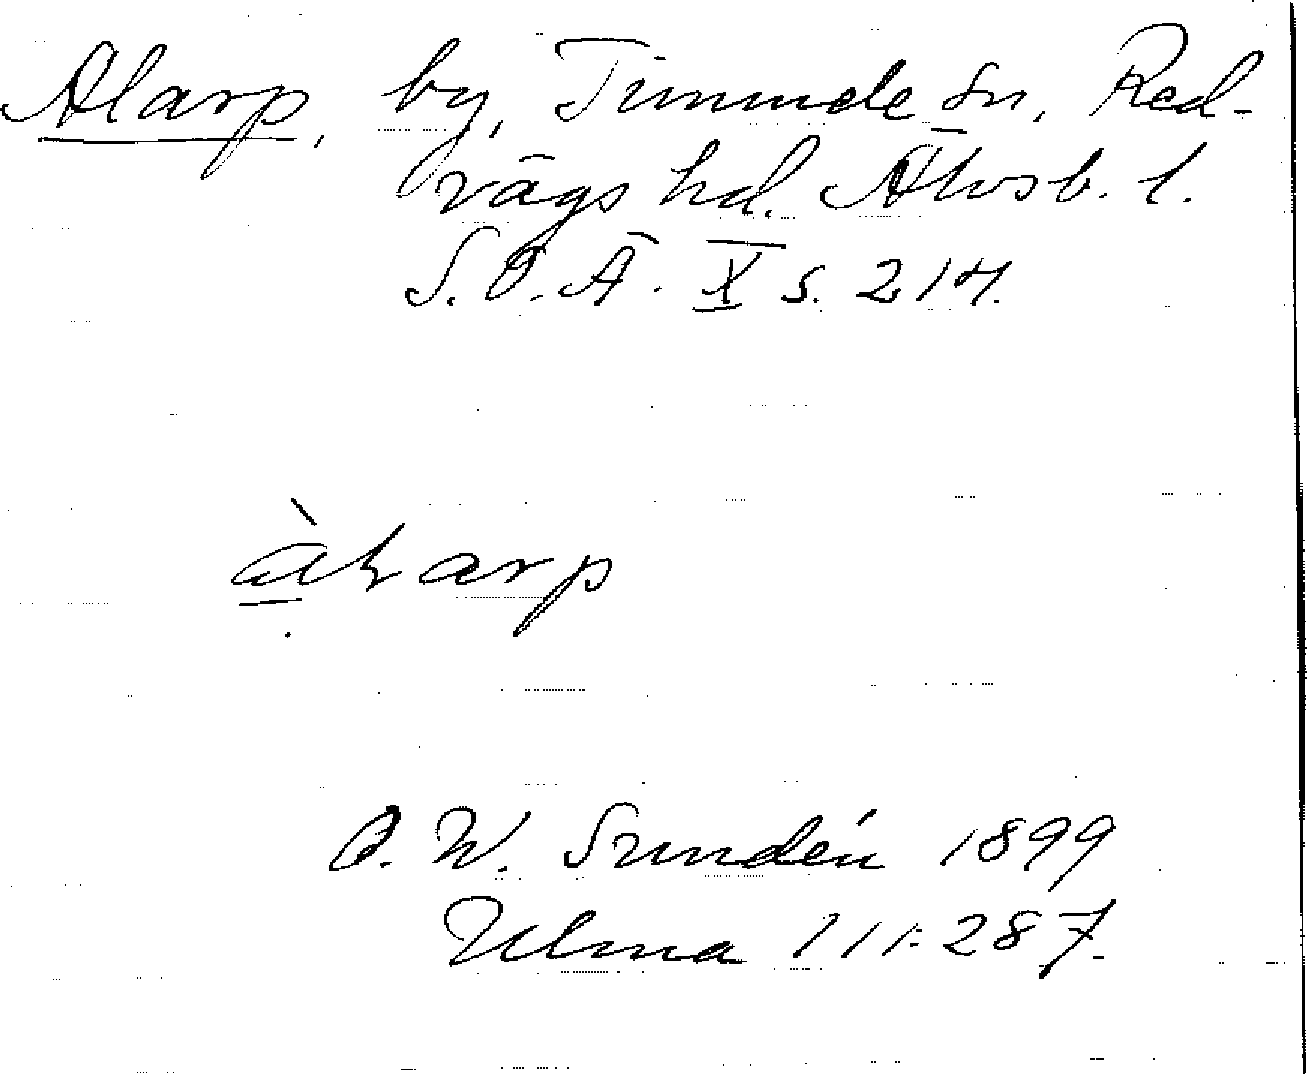 Alarp, by, Timmele sn, Red-
vägs hd. Älvsb. l.
S.O.Ä. X s. 214.
àlarp
D. W. Sundén 1899
Ulma 111:287.